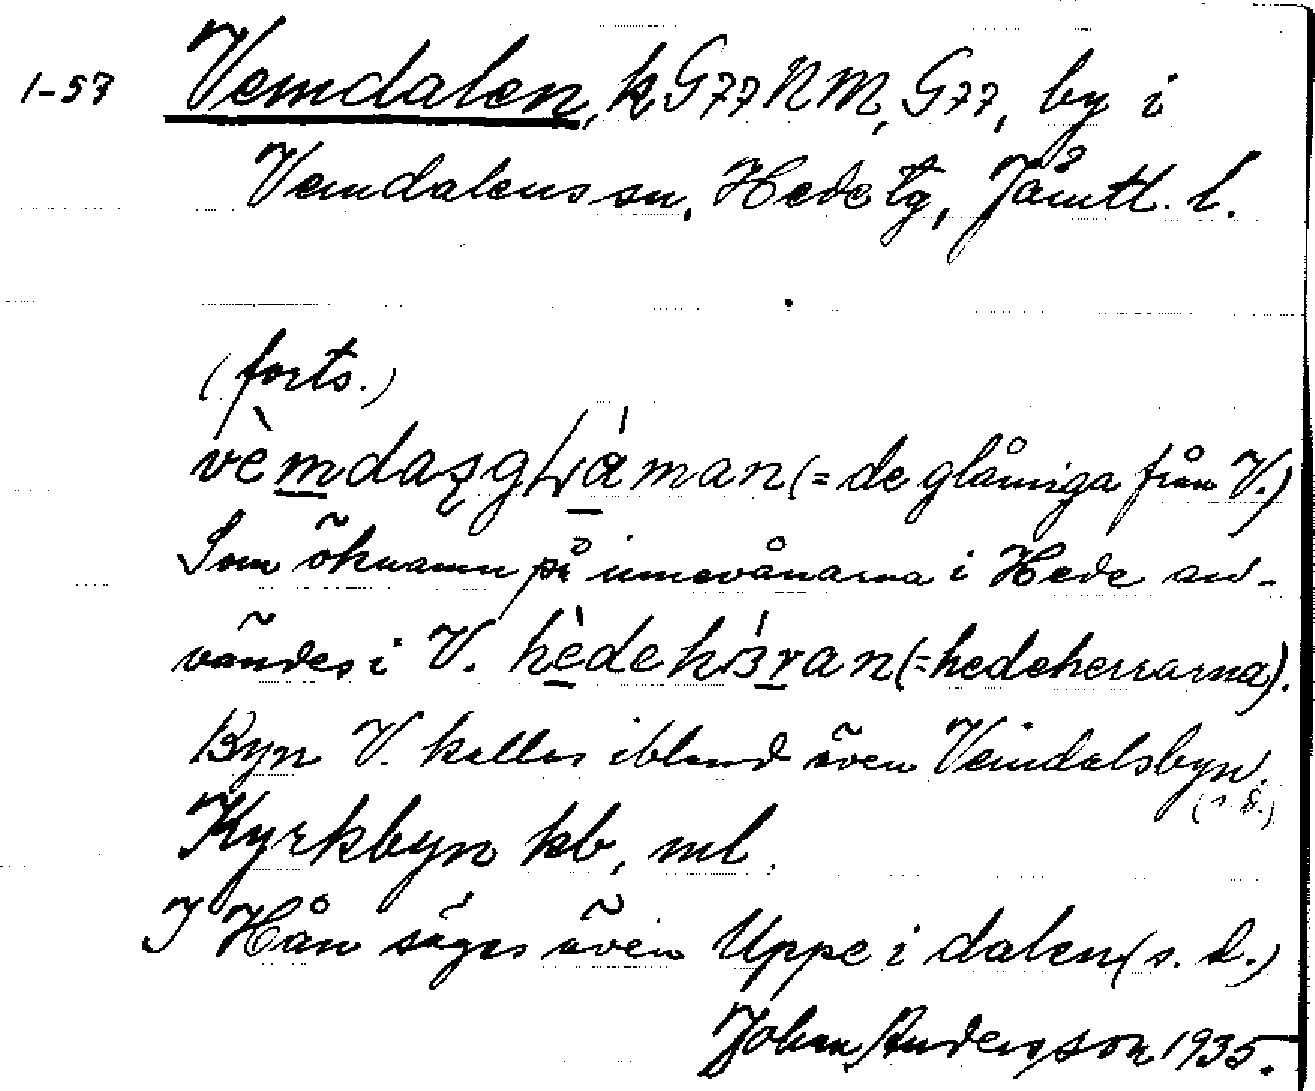 1-57 Vemdalen, k G77 N M, G77, by i
Vemdalens sn, Hede tg, Jämtl. l.
(forts.)
(= de glåmiga från V.)
Som öknamn på innevånarna i Hede an-
vändes i V. (= hedeherrarna).
Byn V. kallas ibland även Vemdalsbyn.
(s. d.)
Kyrkbyn kb, ml.
I Hån säges även Uppe i dalen (s. d.)
Johan Anderson 1935.